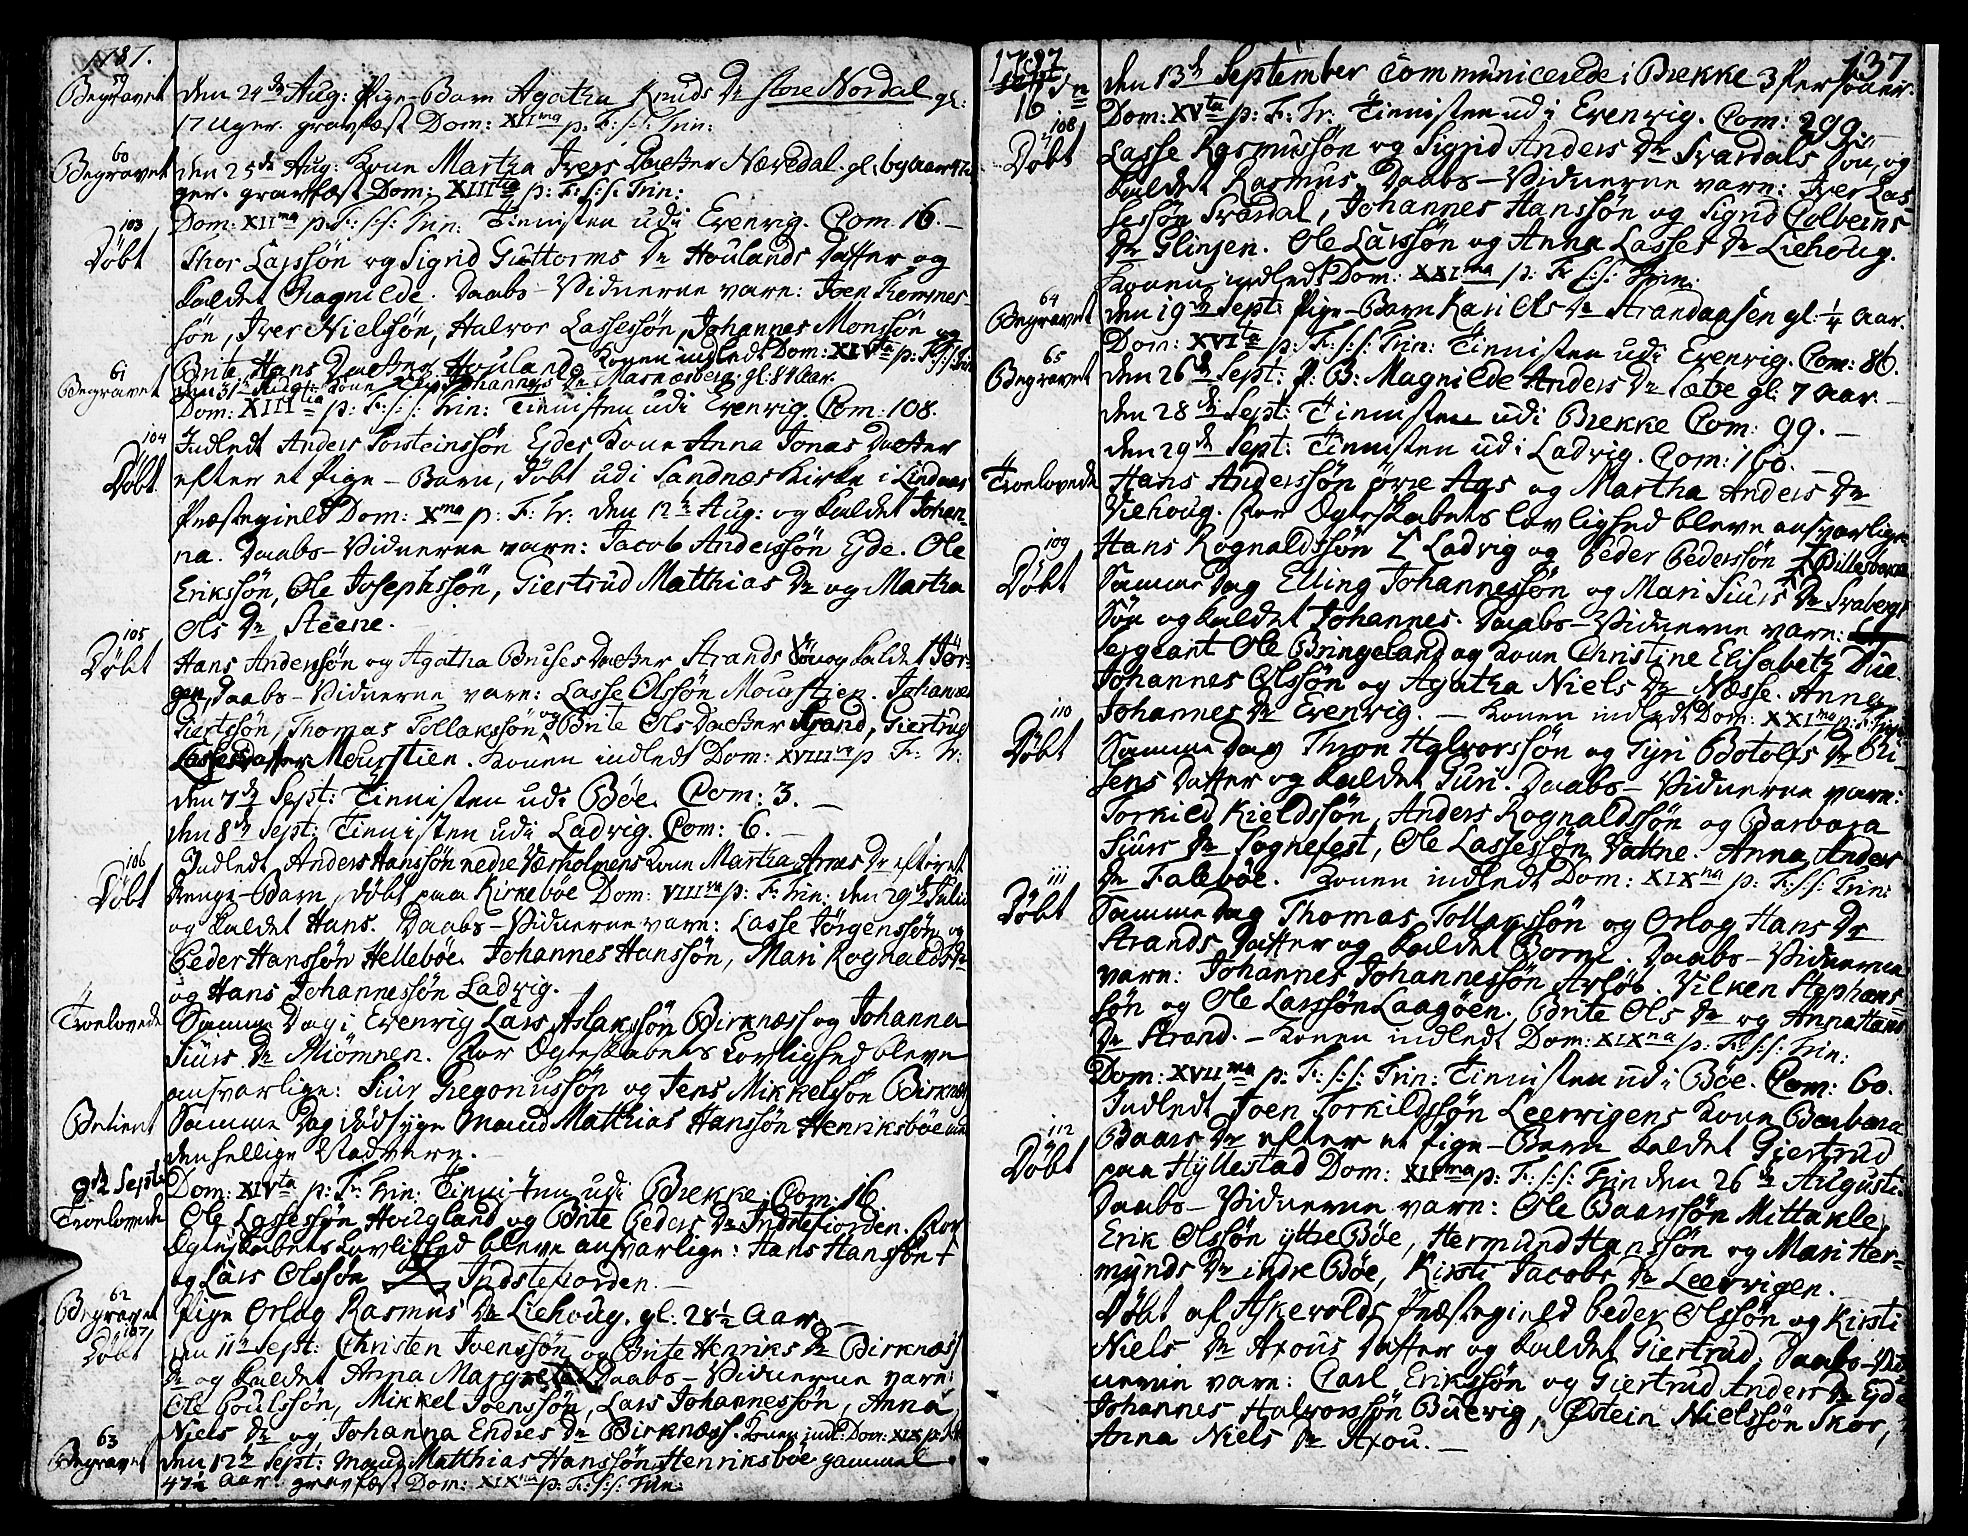 1787.
59
Begravet
den 24de Aug: Pige-Barn Agatha Knuds Dr store Nordal gl:
17 Uger. gravfæst Dom: XIIma p: F: S: S: Trin:
60
Begravet
den 25de Aug: Kone Martha Ivers Datter Næredal. gl: 69 Aar
ger. gravfæst Dom: XIIItia p: F: S: S: Trin:
Dom: XIIma p: F: S: S: Trin: Tienisten udi Evenvig. Com. 16. –
103
Døbt
Thor Larssøn og Sigrid Guttorms Dr Houlands Datter og
kaldet Ragnilde. Daabs-Vidnerne vare: Joen Thommes-
søn, Iver Nielssøn, Halvor Lassessøn, Johannes Monssøn og
Brite Hans Datter Houland. Konen indledt Dom: XIVta p: F: S: S: Trin
61
Begravet
den 31te Aug: Kone Johannes Dr Masnæsberg. gl: 84 Aar.
Dom: XIIItia p: F: S: S: Trin: Tienisten udi Evenvig. Com: 108.
104
Døbt
Indledt Anders Torsteinssøn Eides Kone Anna Jonas Datter
efter et Pige-Barn, døbt udi Sandnæs Kirke i Lindaas
Præstegield Dom: Xma p: F: Tr: den 12te Aug: og kaldet Johan-
na. Daabs-Vidnerne vare: Jacob Anderssøn Eyde. Ole
Erikssøn, Ole Josephssøn, Giertrud Matthias Dr og Martha
Ols Dr Steene.
105
Døbt
Hans Anderssøn og Agatha Bruses Datter Strands Søn og kaldet Jør-
gen, Daabs-Vidnerne vare: Lasse Olssøn Mourstien. Johannes
Giertssøn, Thomas Tollakssøn og Brite Ols Datter Strand, Giertrud
Lassesdatter Mourstien. Konen indledt Dom: XVIIIva p: F: Tr:
den 7de Sept: Tienisten udi Bøe. Com: 3. –
den 8de Sept: Tienisten udi Ladvig. Com: 6. –
106
Døbt
Indledt Anders Hanssøn nedre Værholmens Kone Martha Arnes Dr efter et
Drenge-Barn, døbt paa Kirkebøe Dom: VIIIva p: F: Trin: den 29de Julii
og kaldet Hans. Daabs-Vidnerne vare: Lasse Jørgenssøn og
Peder Hanssøn Hellebøe. Johannes Hanssøn, Mari Rognalds Dr
og Hans Johannessøn Ladvig.
Troelovede
Samme Dag i Evenvig Lars Aslakssøn Birknæss og Johanna
Siurs Dr Miømnen. For Ægteskabets Lovlighed bleve
ansvarlige: Siur Gregoriussøn og Jens Mikkelssøn Birknæs
Betient
Samme Dag dødsyge Mand Matthias Hanssøn Henriksbøe med
den hellige Nadvere.
9de Sept:
Dom: XIVta p: F: Trin: Tienisten udi Brekke. Com: 16
Troelovede
Ole Lassessøn Hougland og Brite Peders Dr Indrefiorden. For
Ægteskabets Lovlighed bleve ansvarlige: Hans Hanssøn +
og Lars Olssøn Indrefiorden.
62
Begravet
Pige Orlog Rasmus Dr Liehoug. gl: 28½ Aar. –
107
Døbt
den 11te Sept: Christen Joenssøn og Brite Henriks Dr Birknæss
Dr og kaldet Anna Margrete. Daabs-Vidnerne vare:
Ole Poulssøn, Mikkel Joenssøn, Lars Johannessøn, Anna
Niels Dr og Johanna Endres Dr Birknæss. Konen indl: Dom: XIX p: F: Tr:
63
Begravet
den 12te Sept: Mand Matthias Hanssøn Henriksbøe gammel
47½ Aar. gravfæst Dom: XIXna p: F: S: S: Trin:
1787
137
Sept:
16
den 13de September Communicerede i Brekke 3 Personer.
Dom: XVta p: F: Tr: Tienisten udi Evenvig. Com: 299.
108
Døbt
Lasse Rasmussøn og Sigrid Anders Dr Svardals Søn, og
kaldet Rasmus. Daabs-Vidnerne vare: Iver Las-
sessøn Svardal, Johannes Hanssøn og Sigrid Colbeins
Dr Glinsen. Ole Larssøn og Anna Lasses Dr Liehoug.
Konen indledt Dom: XXIma p: F: S: S: Trin:
64
Begravet
den 19de Sept: Pige-Barn Kari Ols Dr Strandaasen gl: ¼ Aar.
Dom: XVIta p: F: S: S: Trin: Tienisten udi Evenvig. Com: 86.
65
Begravet
den 26de Sept: P: B: Magnilde Anders Dr Tæbe gl. 7 Aar –
den 28de Sept: Tienisten udi Brekke Com: 99. –
den 29de Sept: Tienisten udi Ladvig. Com: 160. –
Troelovede
Hans Anderssøn øvre Aas og Martha Anders Dr
Viehoug. For Ægteskabets lovlighed bleve ansvarlige
Hans Rognaldssøn Ladvig og Peder Pederssøn Dillebakke
109
Døbt
Samme Dag Elling Johannessøn og Mari Siurs Dr Svabergs
Søn og kaldet Johannes. Daabs-Vidnerne vare:
Sergeant Ole Bringeland og Kone Christine Elisabeth Due.
Johannes Olssøn og Agatha Niels Dr Næsse. Anna
Johannes Dr Evenvig. – Konen indledt Dom: XXIma p: F: Trin:
110
Døbt
Samme Dag Thron Halvorssøn og Gyri Botolfs Dr Ri-
sens Datter og kaldet Guri. Daabs-Vidnerne vare:
Torkild Kieldssøn, Anders Rognaldssøn og Barbara
Siurs Dr Sognefest, Ole Lassessøn Vatne. Anna Anders
Dr Falebøe. Konen indledt Dom: XIXna p: F: S: S: Trin:
111
Døbt
Samme Dag Thomas Tollakssøn og Orlog Hans Dr
Strands Datter og kaldet Borni. Daabs-Vidnerne
vare: Johannes Johannessøn Arsløb. Vilken Stephans-
søn og Ole Larssøn Laagøen. Brite Ols Dr og Anna Hans
Dr Strand. – Konen indledt Dom: XIXna p: F: S: S: Trin:
Dom: XVIIma p: F: S: S: Trin: Tienisten udi Bøe. Com: 60.
112
Døbt
Indledt Joen Torkildssøn Leervigens Kone Barbara
Baars Dr efter et Pige-Barn kaldet Giertrud
paa Hyllestad Dom: XIIma p: F: S: S: Trin den 26de Augusti.
Daabs-Vidnerne vare: Ole Baarssøn Mittakle,
Erik Olssøn yttre Bøe, Hermund Hanssøn og Mari Her-
munds Dr indre Bøe, Kirsti Jacobs Dr Leervigen. –
Døbt af Askevolds Præstegield Peder Olssøn og Kirsti
Niels Dr Axous Datter og kaldet Giertrud, Daabs-Vid-
nerne vare: Carl Erikssøn og Giertrud Anders Dr Eyde
Johannes Halvorssøn Buevig, Østein Nielssøn Skor,
Anna Niels Dr Axou. –